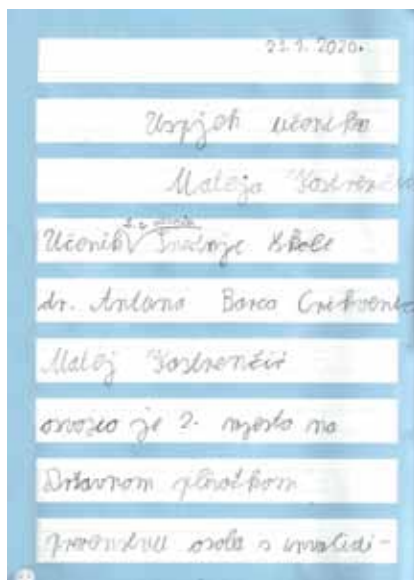 21.9.2020.
Uspjeh učenika
Mateja Kostrenčića
Učenik Srednje škole
dr. Antuna Barca Crikvenica
Matej Kostrenčić
osvojio je 2. mjesto na
Državnom plivačkom
prvenstvu osoba s invalidi-